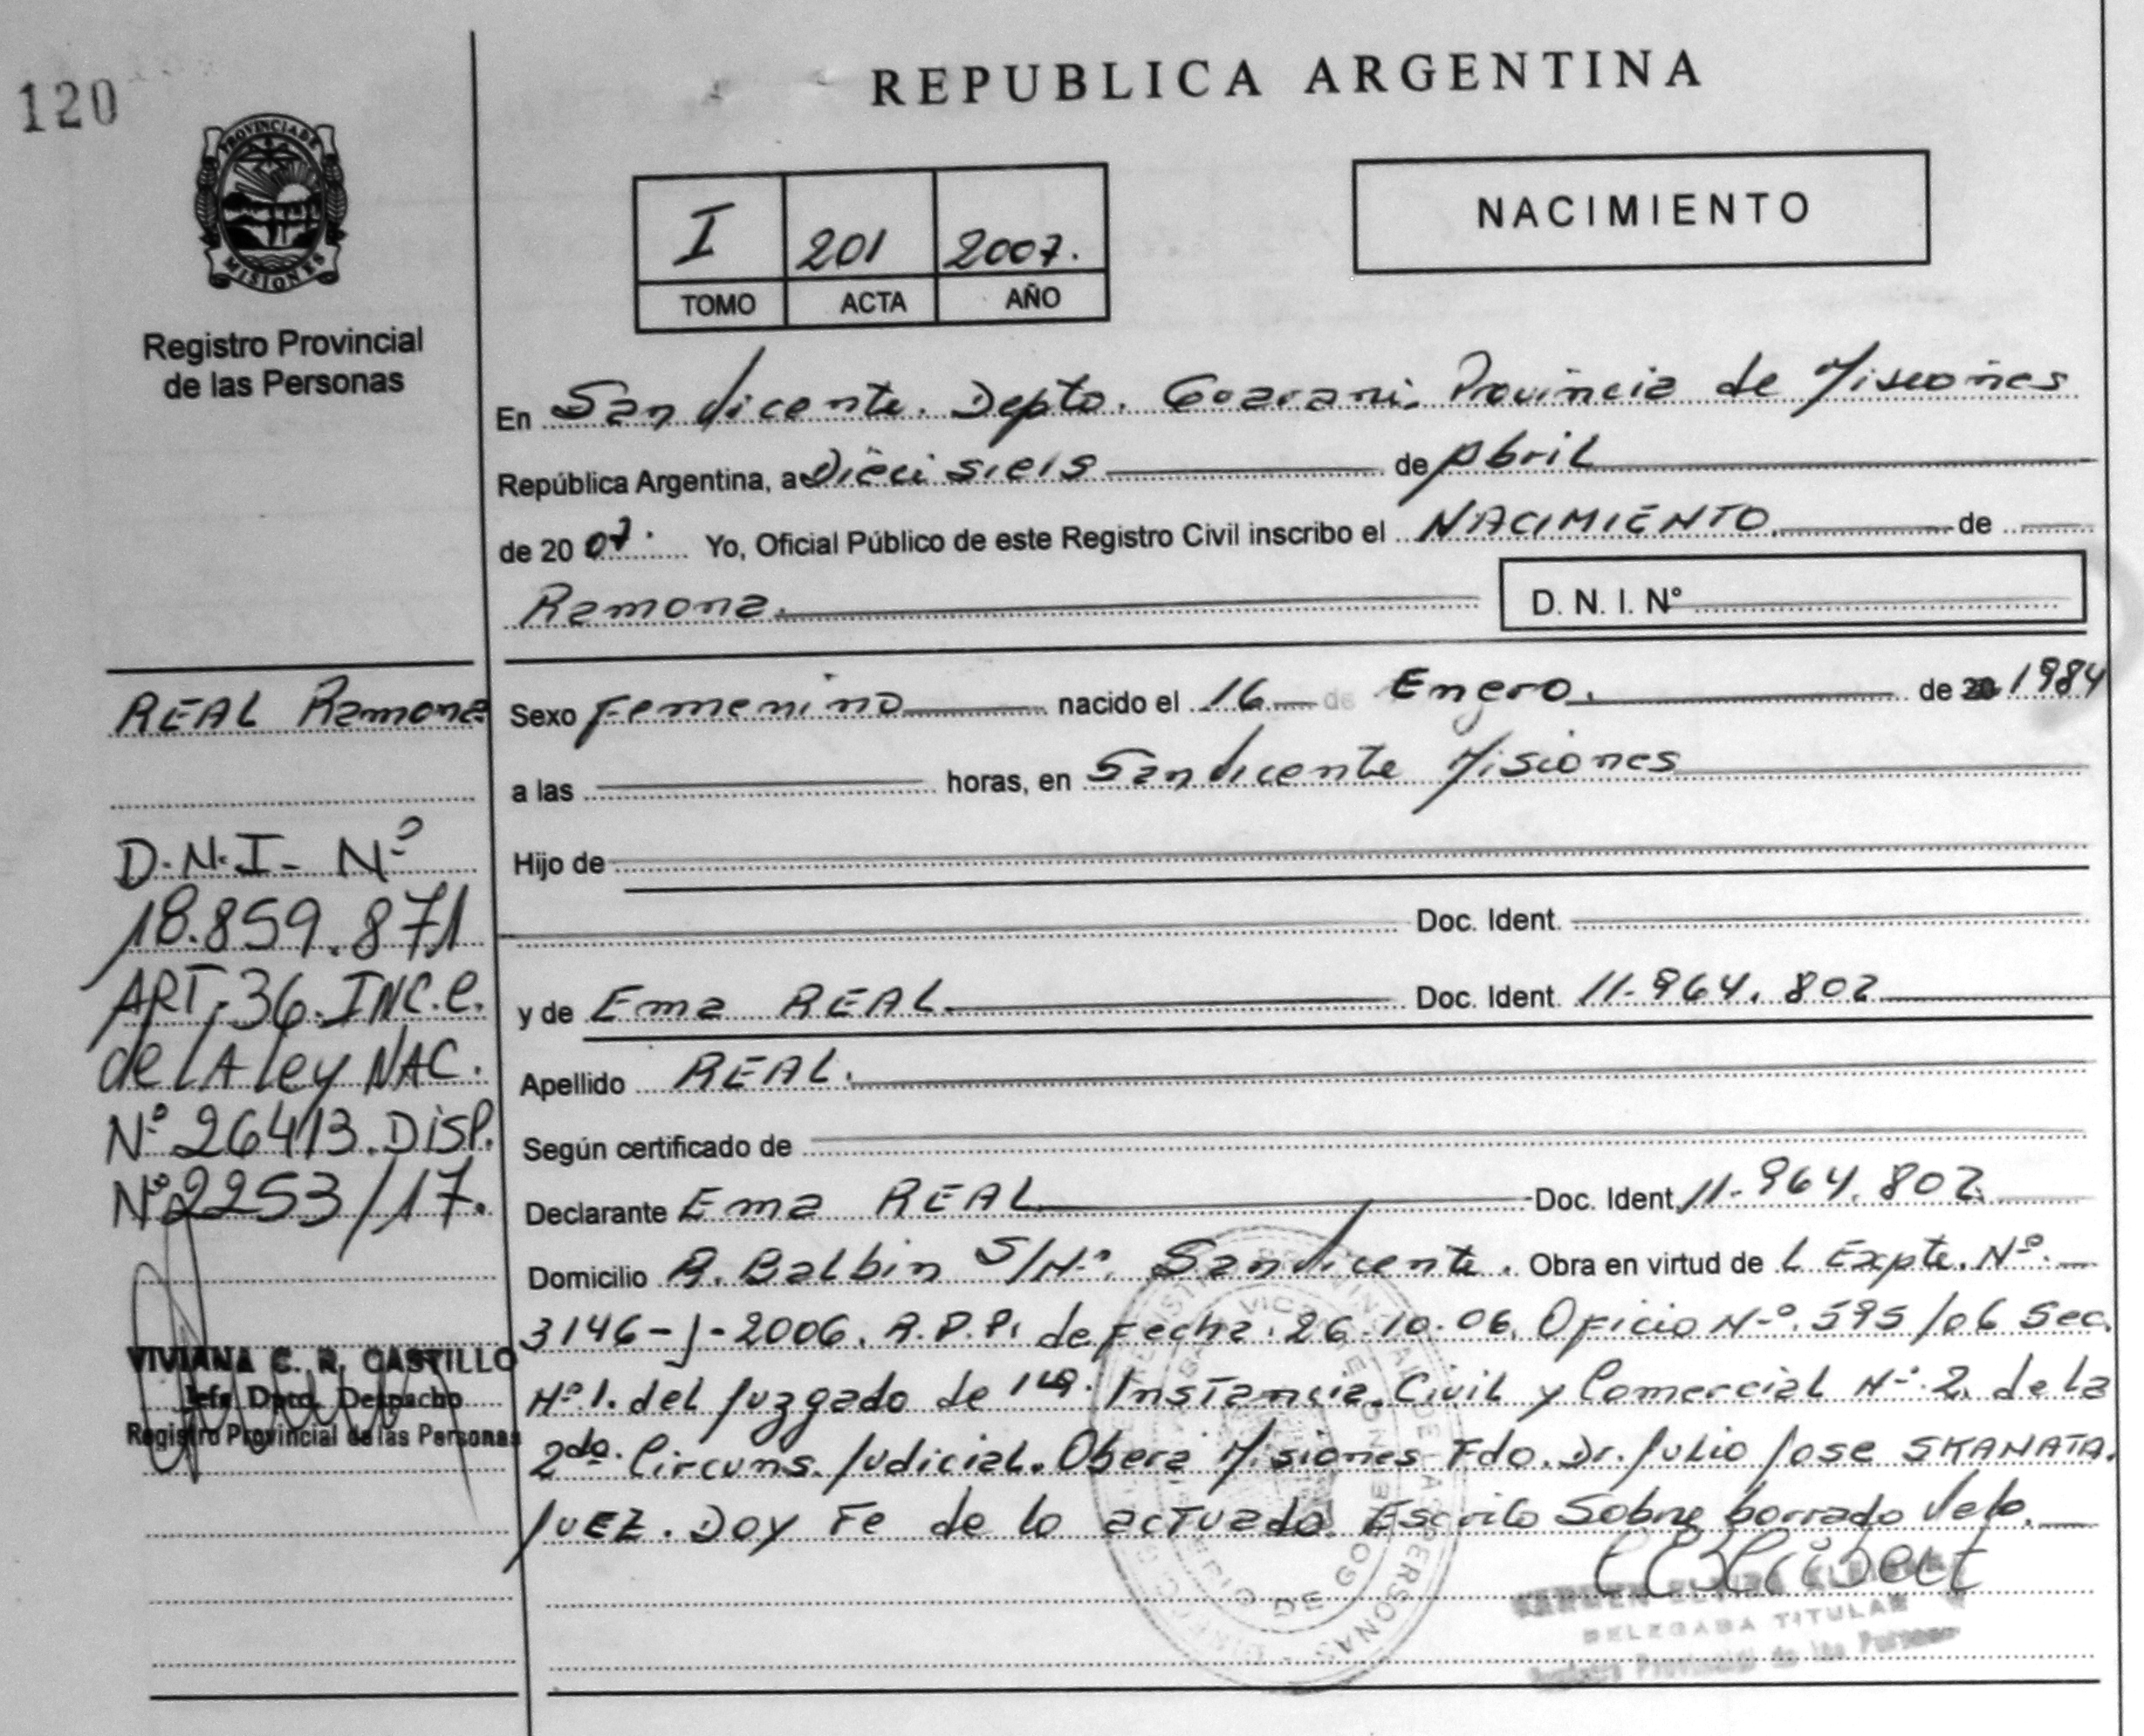 120
REPUBLICA ARGENTINA
PROVINCIA DE
MISIONES
Registro Provincial
de las Personas
I 201 2007.
TOMO ACTA AÑO
NACIMIENTO
En San Vicente. Depto. Guarani. Provincia de Misiones
República Argentina, a Dieciseis de Abril
de 20 07. Yo, Oficial Público de este Registro Civil inscribo el NACIMIENTO de
Ramona. D. N. I. N°
REAL Ramona
Sexo Femenino nacido el 16 de Enero. de 20 1984
a las horas, en San Vicente Misiones
Hijo de
Doc. Ident.
y de Ema REAL. Doc. Ident. 11.964.802
Apellido REAL.
Según certificado de
Declarante Ema REAL Doc. Ident. 11.964.802
Domicilio R. Balbin S/Nº. San Vicente. Obra en virtud de l Expte. Nº.
3146-J-2006. R.P.P. de Fecha. 26.10.06. Oficio Nº. 595/06 Sec.
Nº 1. del Juzgado de 1ra. Instancia. Civil y Comercial Nº 2. de la
2da. Circuns. Judicial. Obera Misiones Fdo. Dr. Julio Jose SKANATA.
JUEZ. Doy Fe de lo actuado. Escrito Sobre borrado Vale.
D.N.I- Nº
18.859.871
ART. 36. INC. e.
de LA Ley NAC.
Nº 26413. DISP.
Nº 2253/17.
VIVIANA C. R. CASTILLO
Jefe Dpto. Despacho
Registro Provincial de las Personas
DELEGADA TITULAR
Registro Provincial de las Personas